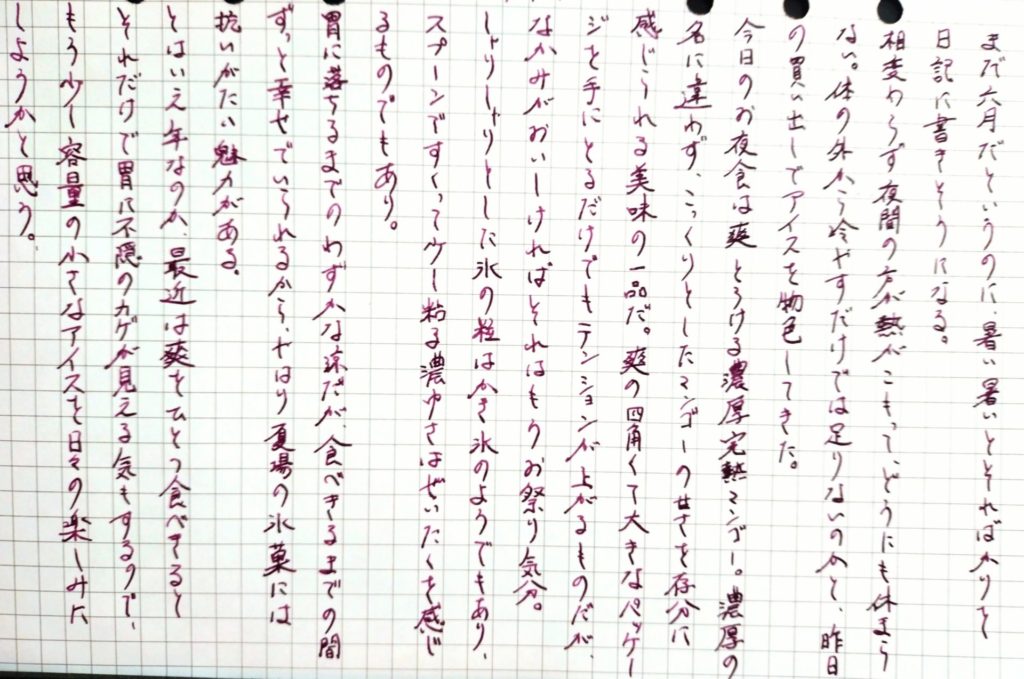 まだ六月だというのに、暑い暑いとそればかりを
日記に書きそうになる。
相変わらず夜間の方が熱がこもって、どうにも休まら
ない。体の外から冷やすだけでは足りないのかと、昨日
の買い出しでアイスを物色してきた。
今日のお夜食は爽 とろける濃厚完熟マンゴー。濃厚の
名に違わず、こっくりとしたマンゴーの甘さを存分に
感じられる美味の一品だ。爽の四角くて大きなパッケー
ジを手にとるだけでもテンションが上がるものだが、
なかみがおいしければそれはもうお祭り気分。
しゃりしゃりとした氷の粒はかき氷のようでもあり、
スプーンですくって少し粘る濃ゆさはぜいたくを感じ
るものでもあり。
胃に落ちるまでのわずかな涼だが、食べきるまでの間
ずっと幸せでいられるから、やはり夏場の氷菓には
抗いがたい魅力がある。
とはいえ年なのか、最近は爽をひとつ食べきると
それだけで胃に不隠のカゲが見える気もするので、
もう少し容量の小さなアイスを日々の楽しみに
しようかと思う。